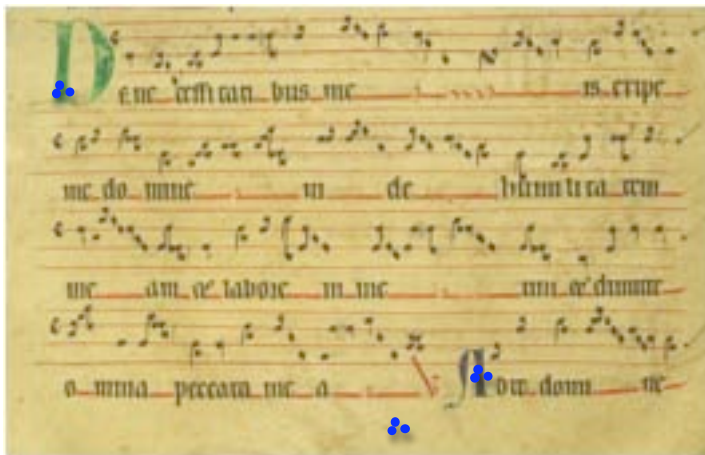 De ne cessi tati bus me is eripe
me do mine vi de humi li ta tem
me am et labore m me um et dimitte
o mnia peccata me a domi ne